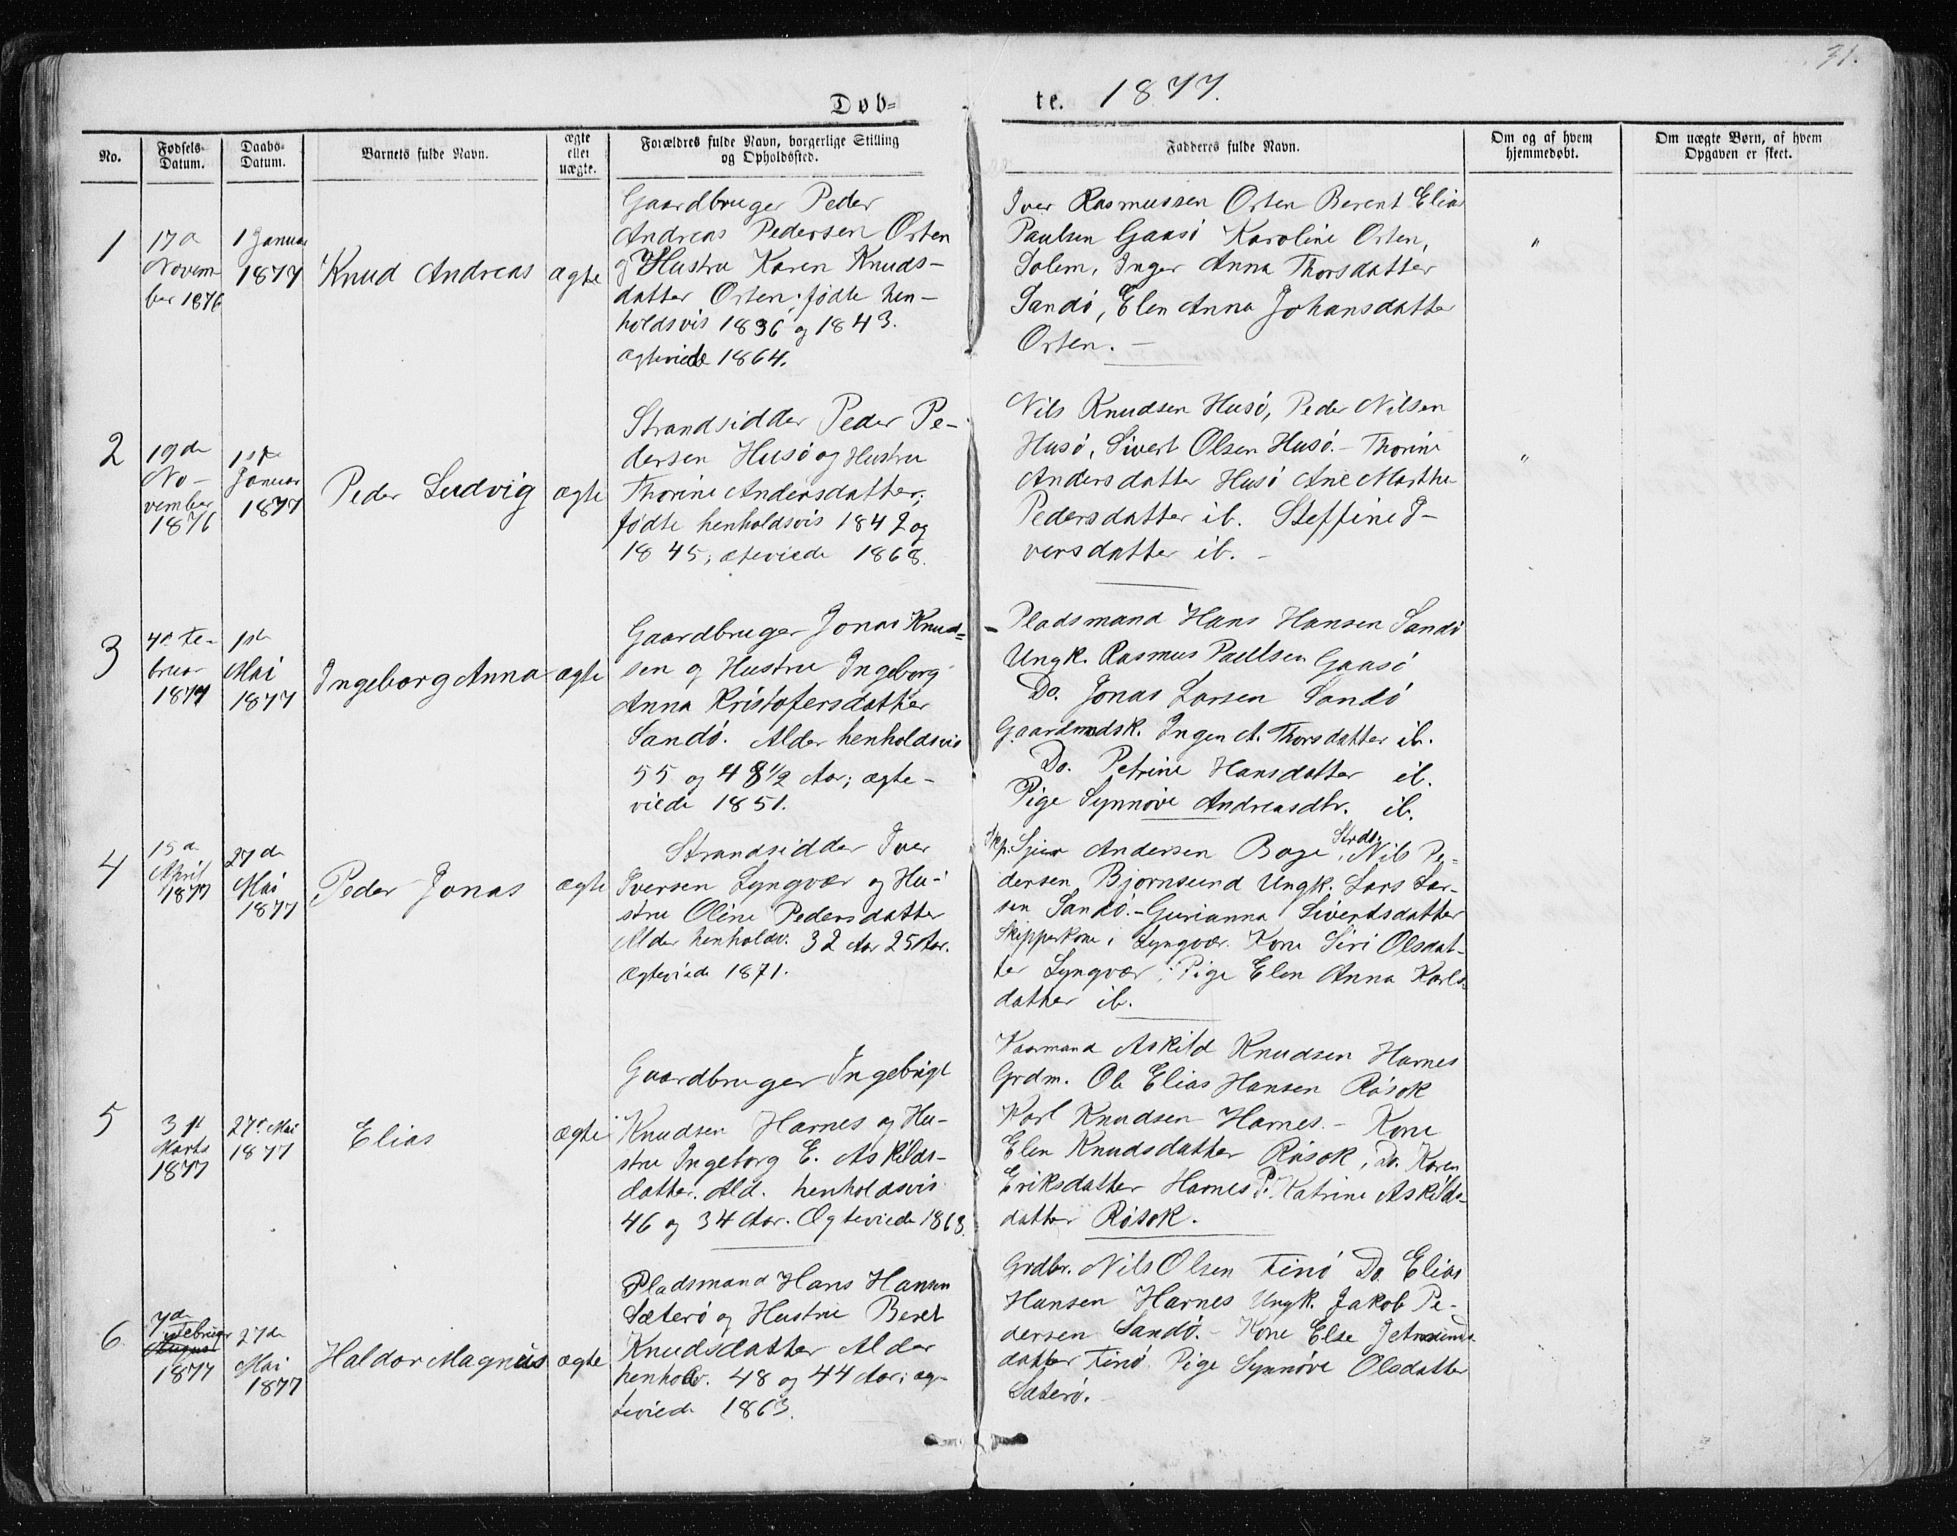 31.
Døb=
te. 1877.
No.
Fødsels-
Datum.
Daabs-
Datum.
Barnets fulde Navn.
ægte
eller
uægte.
Forældres fulde Navn, borgerlige Stilling
og Opholdsted.
Fadderes fulde Navn.
Om og af hvem
hjemmedøbt.
Om uægte Børn, af hvem
Opgaven er skeet.
1
17d
Novem-
ber 1876
1 Januar
1877
Knud Andreas
ægte
Gaardbruger Peder
Andreas Pedersen Orten
og Hustru Karen Knuds-
datter Orten. fødte hen-
holdsvis 1836 og 1843.
ægteviede 1864.
Iver Rasmussen Orten Berent Elias
Paulsen Gaasø Karoline Orten,
Solem, Inger Anna Thorsdatter
Sandø, Elen Anna Johansdatter
Orten. -
"
2
19de
No-
vember
1876
1ste
Januar
1877
Peder Ludvig
ægte
Strandsidder Peder Pe-
dersen Husø og Hustru
Thorine Andersdatter;
fødte henholdsvis 1842 og
1845; æteviede 1868.
Nils Knudsen Husø, Peder Nilsen
Husø, Sivert Olsen Husø. - Thorine
Andersdatter Husø Ane Marthe
Pedersdatter ib. Steffine I-
versdatter ib. -
"
3
4d Fe-
bruar
1877
1st
Mai
1877
Ingeborg Anna
ægte
Gaardbruger Jonas Knud=
sen og Hustru Ingeborg
Anna Kristofersdatter
Sandø. Alder henholdsvis
55 og 48 1/2 Aar; ægte-
viede 1851.
- Pladsmand Hans Hansen Sandø
Ungk. Rasmus Paulsen Gaasø
Do. Jonas Larsen Sandø
Gaardmdsk. Inger A. Thorsdatter ib.
Do. Petrine Hansdatter ib.
Pige Synnøve Andreasdtr. ib.
4
15d
April
1877
27de
Mai
1877
Peder Jonas
ægte
Strandsidder Iver
Iversen Lyngvær og Hu-
stru Oline Pedersdatter
Alder henholdv. 32 Aar 25 Aar.
ægteviede 1871.
Skp. Sjur Andersen Boge, Strds. Nils Pe-
dersen Bjornsund Ungk. Lars Lar-
sen Sandø. - Gurianna Sivertsdatter
Skipperkone, Lyngvær. Kone Siri Olsdat-
ter Lyngvær. Pige Elen Anna Karls-
datter ib.
5
3d
Marts
1877
27d Mai
1877
Elias
ægte
Gaardbruger Ingebrigt
Knudsen Harnes og Hu-
stru Ingeborg E. Askilds-
datter. Ald. henholdsvis
46 og 34 Aar. Ægteviede 1868.
Kaarmand Askild Knudsen Harnes
Grdm. Ole Elias Hansen Røsok
Karl Knudsen Harnes. - Kone
Elen Knudsdatter Røsok, Do. Karen
Eriksdatter Harnes P. Katrine Askilds-
datter Røsok.
6.
7d
Februar
August
1877
27de
Mai
1877
Haldor Magnus
ægte
Pladsmand Hans Hansen
Sæterø og Hustru Beret
Knudsdatter Alder
henholdv. 48 og 44 Aar; æg-
teviede 1863.
Grdbr. Nils Olsen Finø Do. Elias
Hansen Harnes Ungk. Jakob Pe-
dersen Sandø. - Kone Else
datter Finø. Pige Synnøve Olsdatter
Sæterø. -